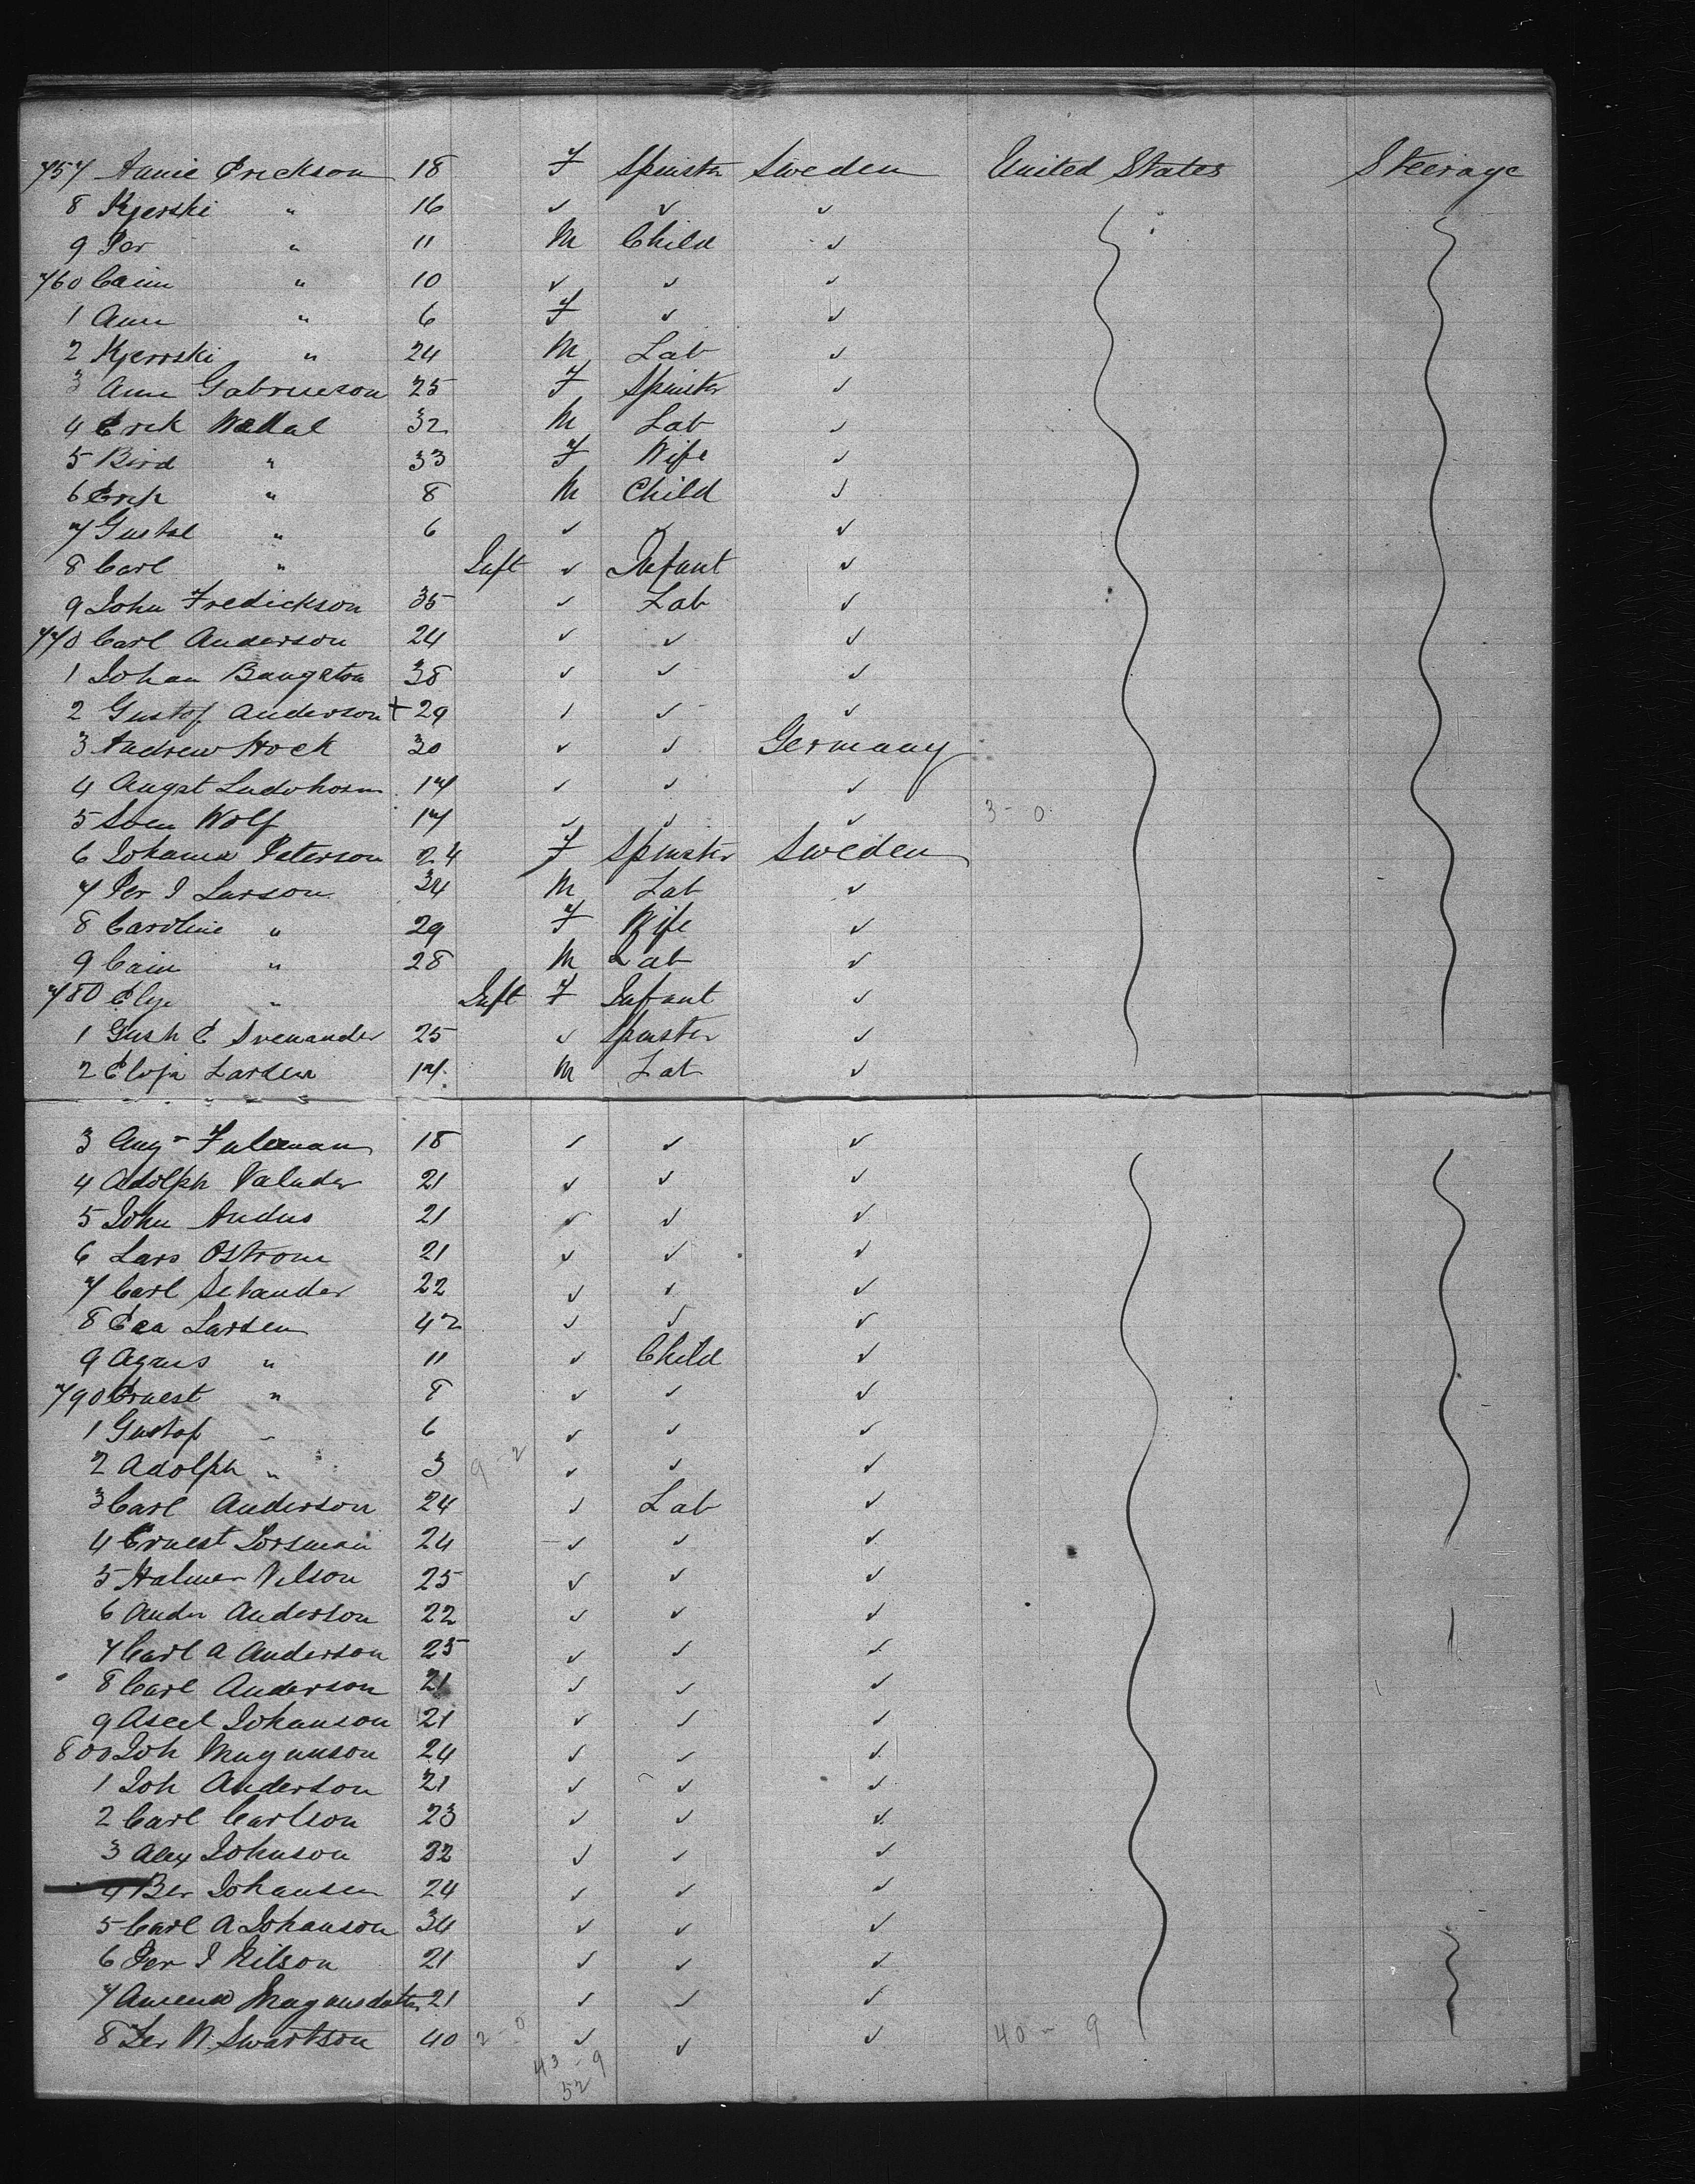 757 Annie Erickson 18 F Spinster Sweden United States Steerage
8 Kjerski " 16 ✓ ✓ ✓
9 Per " 11 M Child ✓
760 Cain " 10 ✓ ✓ ✓
1 Ann " 6 F ✓ ✓
2 Kjerrski " 24 M Lab ✓
3 Ann 25 F Spinster ✓
4 Erik Wallal 32 M Lab ✓
5 Bird " 33 F Wife ✓
6 Erik " 8 M Child ✓
7 Gustal " 6 ✓ ✓ ✓
8 Carl " Inft ✓ Infant ✓
9 John Fredickson 35 ✓ Lab ✓
770 Carl Anderson 24 ✓ ✓ ✓
1 Johan Bangston 38 ✓ ✓ ✓
2 Gustof Anderson + 29 ✓ ✓ ✓
3 Andrew Hock 30 ✓ ✓ Germany
4 Augst 17 ✓ ✓ ✓
5 Sven Wolf 17 ✓ ✓ ✓ 3 - 0
6 Johanna Peterson 24 F Spinster Sweden
7 Per I Larson 34 M Lab ✓
8 Caroline " 29 F Wife ✓
9 Cain " 28 M Lab ✓
780 " Inft F Infant ✓
1 E Svenander 25 ✓ Spinster ✓
2 Larsen 17 M Lab ✓
3 Aug 18 ✓ ✓ ✓
4 Adolph Valuder 21 ✓ ✓ ✓
5 John Andus 21 ✓ ✓ ✓
6 Lars Ostrom 21 ✓ ✓ ✓
7 Carl Selander 22 ✓ ✓ ✓
8 Larsen 42 ✓ ✓ ✓
9 Agnus " 11 ✓ Child ✓
790 Ernest " 8 ✓ ✓ ✓
1 Gustof " 6 ✓ ✓ ✓
2 Adolph " 3 9 - 2 ✓ ✓ ✓
3 Carl Anderson 24 ✓ Lab ✓
4 Ernest Lorsman 24 ✓ ✓ ✓
5 Halmer Nelson 25 ✓ ✓ ✓
6 Ander Anderson 22 ✓ ✓ ✓
7 Carl A Anderson 25 ✓ ✓ ✓
8 Carl Anderson 21 ✓ ✓ ✓
9 Aseel Johanson 21 ✓ ✓ ✓
800 Joh Magnuson 24 ✓ ✓ ✓
1 Joh Anderson 21 ✓ ✓ ✓
2 Carl Carlson 23 ✓ ✓ ✓
3 Alex Johnson 22 ✓ ✓ ✓
4 Ber Johansen 24 ✓ ✓ ✓
5 Carl A Johanson 34 ✓ ✓ ✓
6 Per I Nilson 21 ✓ ✓ ✓
7 Magnusdatter 21 ✓ ✓ ✓
8 Per N. Swartson 40 2 - 0 ✓ ✓ ✓ 40 - 9
43 - 9
52